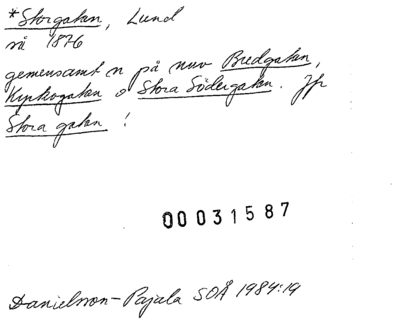 *Storgatan, Lund
nå 1876
gemensamt n på nuv Bredgatan,
Kyrkogatan o Stora Södergatan. Jfr
Stora gatan !
00031587
Danielsson-Pajala SOÅ 1984:19